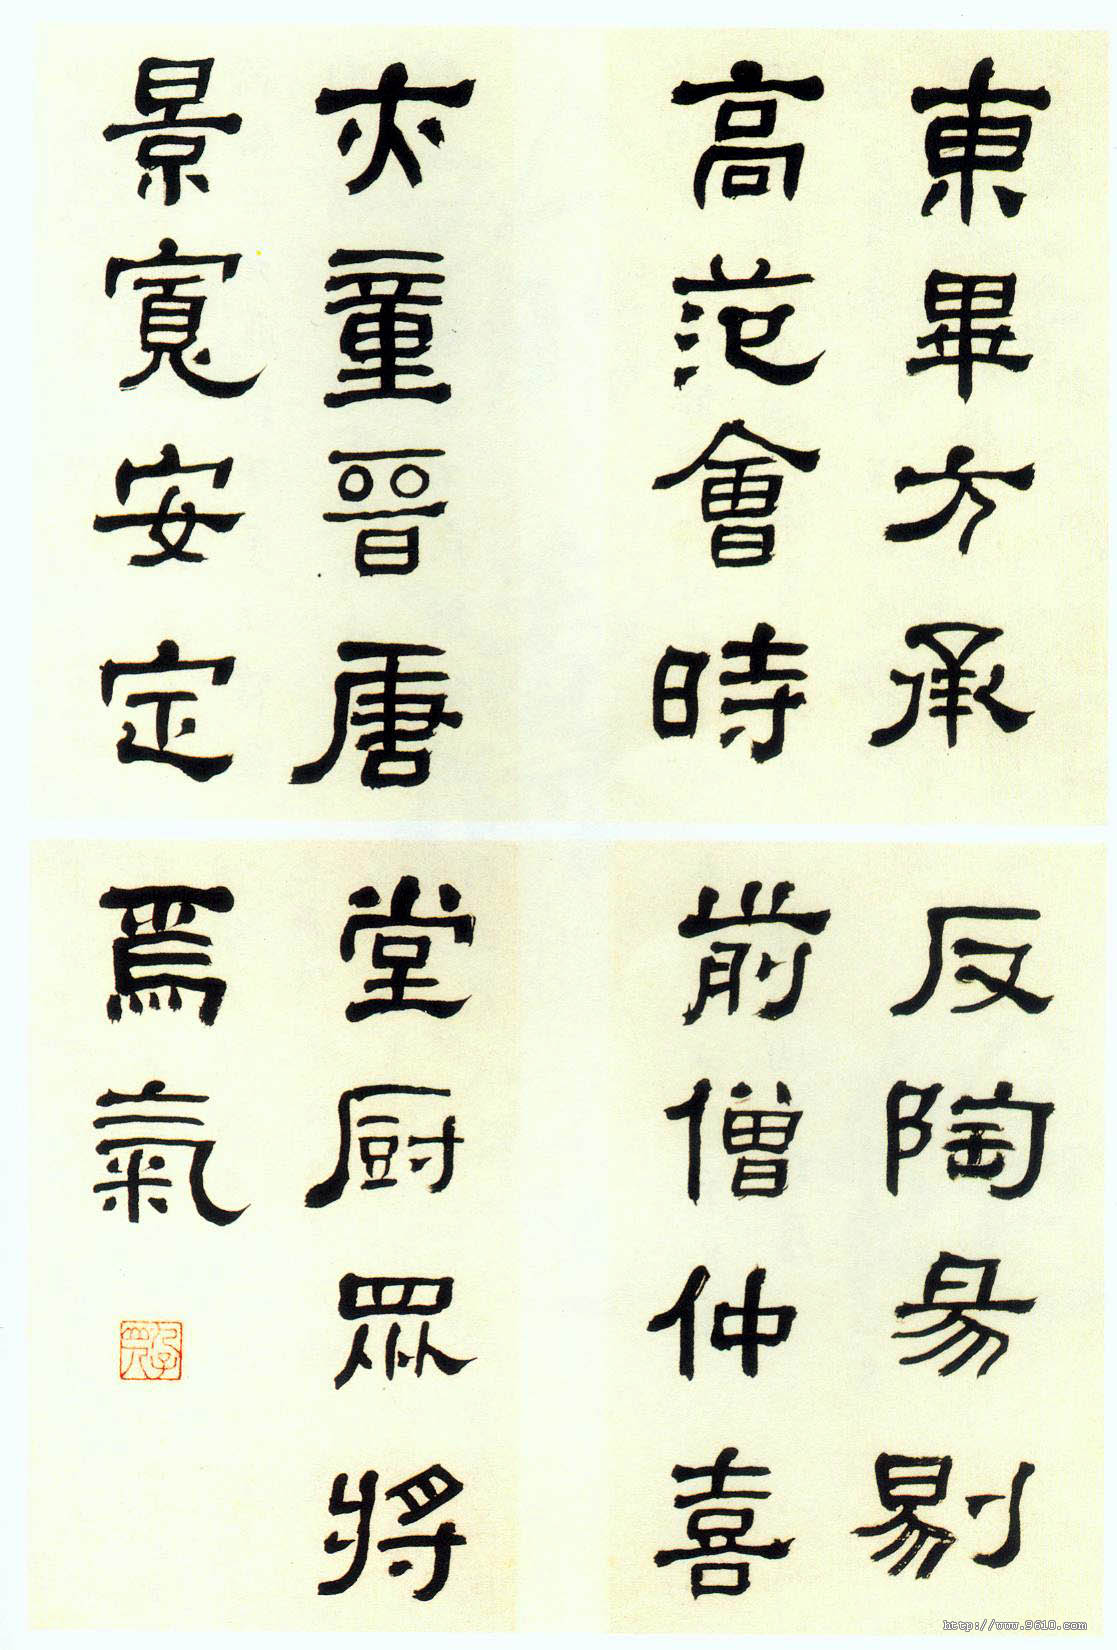 東畢方承
高范會時
夾童晉唐
景寬安定
反陶易剔
前僧仲喜
堂厨眾將
焉氣
http://www.9610.com